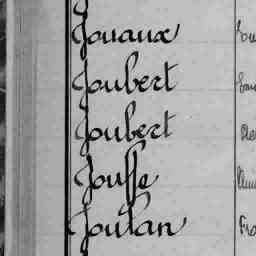 Jouaux
Joubert
Joubert
Jouffe
Joulan